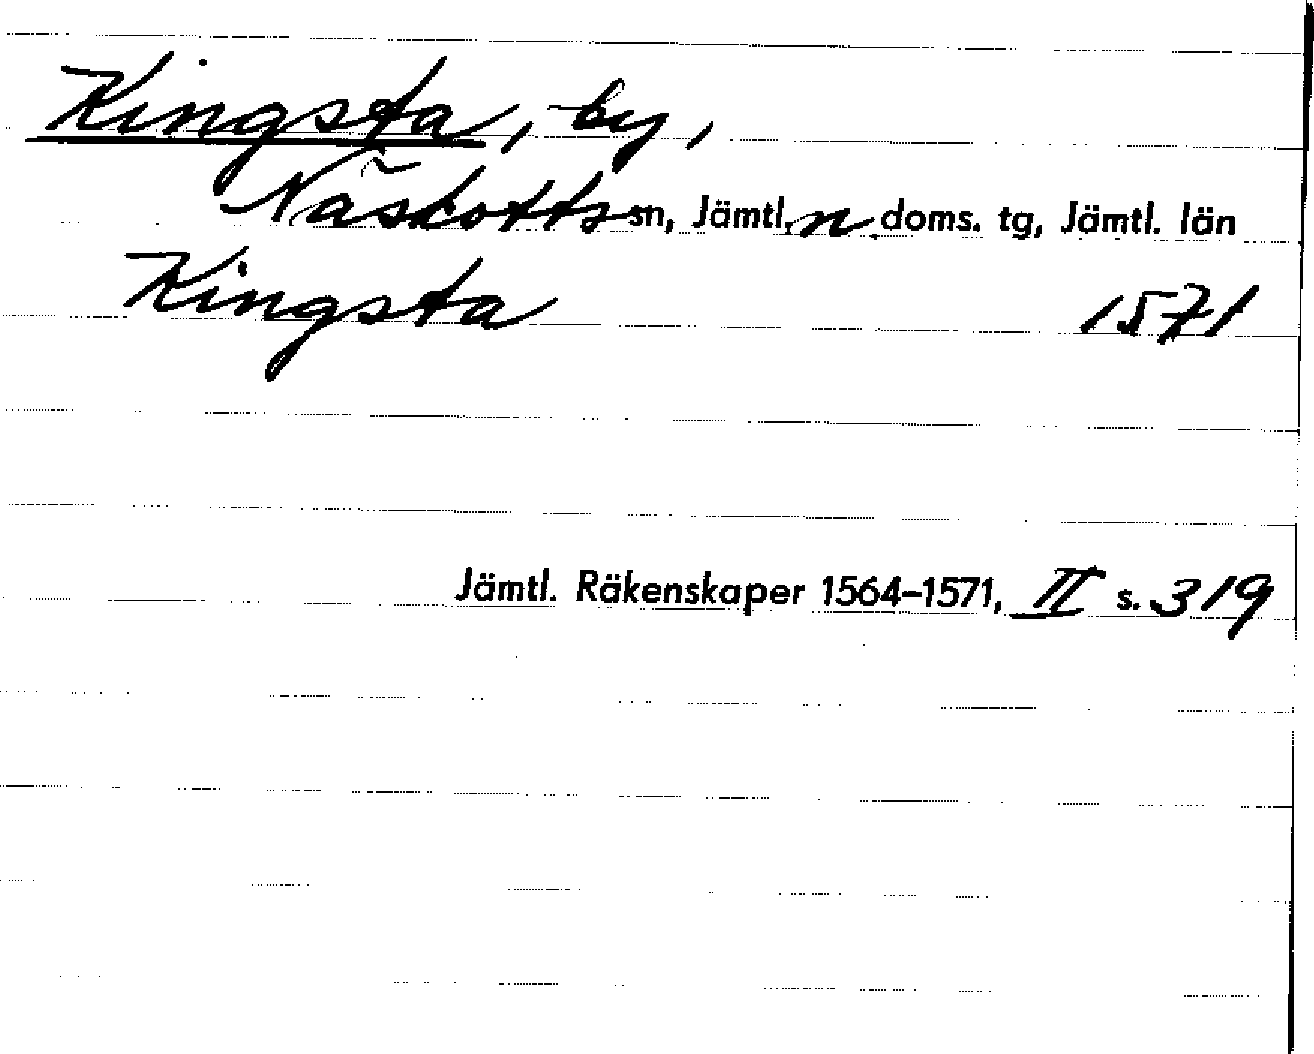 Kingsta, by,
Näskotts sn, Jämtl. n doms. tg, Jämtl. län
Kingsta 1571
Jämtl. Räkenskaper 1564-1571, II s. 319